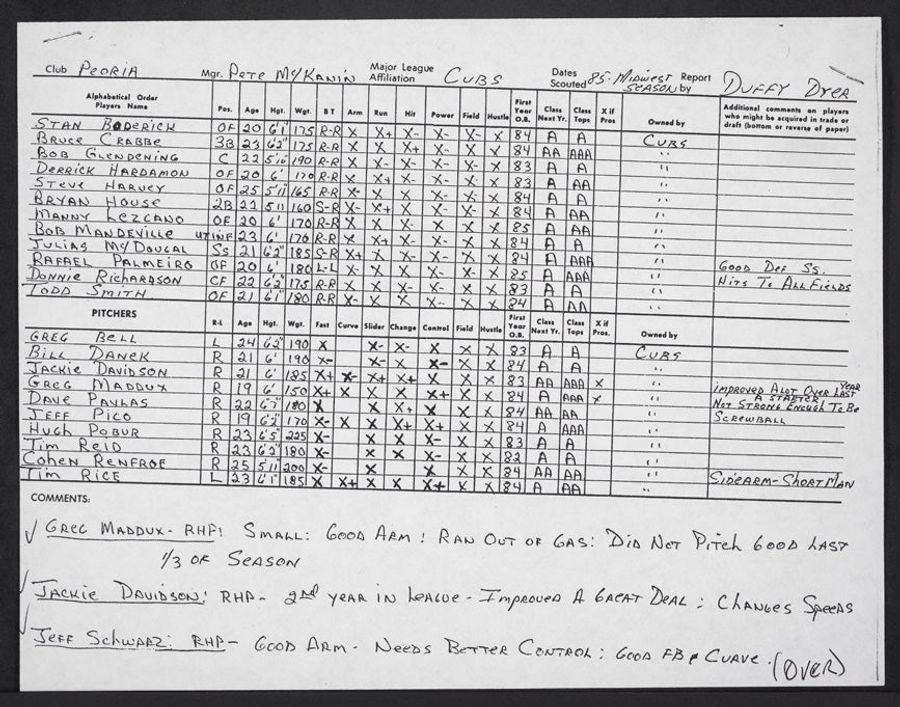 Club PEORIA Mgr. PETE MCKANIN Major League Affiliation CUBS Dates Scouted 85-MIDWEST SEASON Report by DUFFY DYER
Alphabetical Order Players Name Pos. Age Hgt. Wgt. B T Arm Run Hit Power Field Hustle First Year O.B. Class Next Yr. Class Tops X if Pros Owned by Additional comments on players who might be acquired in trade or draft (bottom or reverse of paper)
STAN BODERICK OF 20 6'1 175 R-R X X+ X- X- X- X 84 A A CUBS
BRUCE CRABBE 3B 23 6'2" 175 R-R X X- X+ X- X X 84 AA AAA ''
BOB GLENDENING C 22 5'10 190 R-R X X- X- X- X X 83 A A ''
DERRICK HARDAMON OF 20 6' 170 R-R X X+ X- X- X X 83 A AA ''
STEVE HARVEY OF 25 5'11 165 R-R X- X X X- X X 84 A A ''
BRYAN HOUSE 2B 22 5'11 160 S-R X- X+ X X- X X 84 A AA ''
MANNY LEZCANO OF 20 6' 170 R-R X X X- X- X X 85 A AA ''
BOB MANDEVILLE UTINF 23 6' 170 R-R X X+ X- X- X X 84 A A ''
JULIAS MCDOUGAL SS 21 6'2" 185 S-R X+ X X- X- X X 84 A AAA '' GOOD DEF SS.
RAFAEL PALMEIRO OF 20 6' 180 L-L X- X X X- X X 85 A AAA '' HITS TO ALL FIELDS
DONNIE RICHARDSON CF 22 6'2 175 R-R X X X- X- X X 83 A A ''
TODD SMITH OF 21 6'1" 180 R-R X- X X X- X X 84 A AA ''
PITCHERS R-L Age Hgt. Wgt. Fast Curve Slider Change Control Field Hustle First Year O.B. Class Next Yr. Class Tops X if Pros. Owned by
GREG BELL L 24 6'2" 190 X X- X- X X X 83 A A CUBS
BILL DANEK R 21 6' 190 X- X- X X- X X 84 A A ''
JACKIE DAVIDSON R 21 6' 185 X+ X- X+ X+ X X X 83 AA AAA X '' IMPROVED ALOT OVER LAST YEAR
GREG MADDUX R 19 6' 150 X+ X X X X+ X X 84 A AAA X '' NOT STRONG ENOUGH TO BE A STARTER
DAVE PAVLAS R 22 6'7" 180 X X X+ X X X 84 AA AA '' SCREWBALL
JEFF PICO R 19 6'2" 170 X- X X X+ X+ X X 84 A AAA ''
HUGH POBUR R 23 6'5" 225 X- X X X- X X 83 A A ''
TIM REID R 23 6'2" 180 X- X X X- X X 82 A A ''
COHEN RENFROE R 25 5'11 200 X- X X X X 84 AA AA '' SIDEARM-SHORT MAN
TIM RICE L 23 6'1" 185 X X+ X X X+ X X 84 A AA ''
COMMENTS:
GREG MADDUX- RHP: SMALL: GOOD ARM: RAN OUT OF GAS: DID NOT PITCH GOOD LAST
1/3 OF SEASON
JACKIE DAVIDSON: RHP- 2nd YEAR IN LEAGUE - IMPROVED A GREAT DEAL: CHANGES SPEEDS
JEFF SCHWARZ: RHP- GOOD ARM- NEEDS BETTER CONTROL: GOOD FB & CURVE. (OVER)